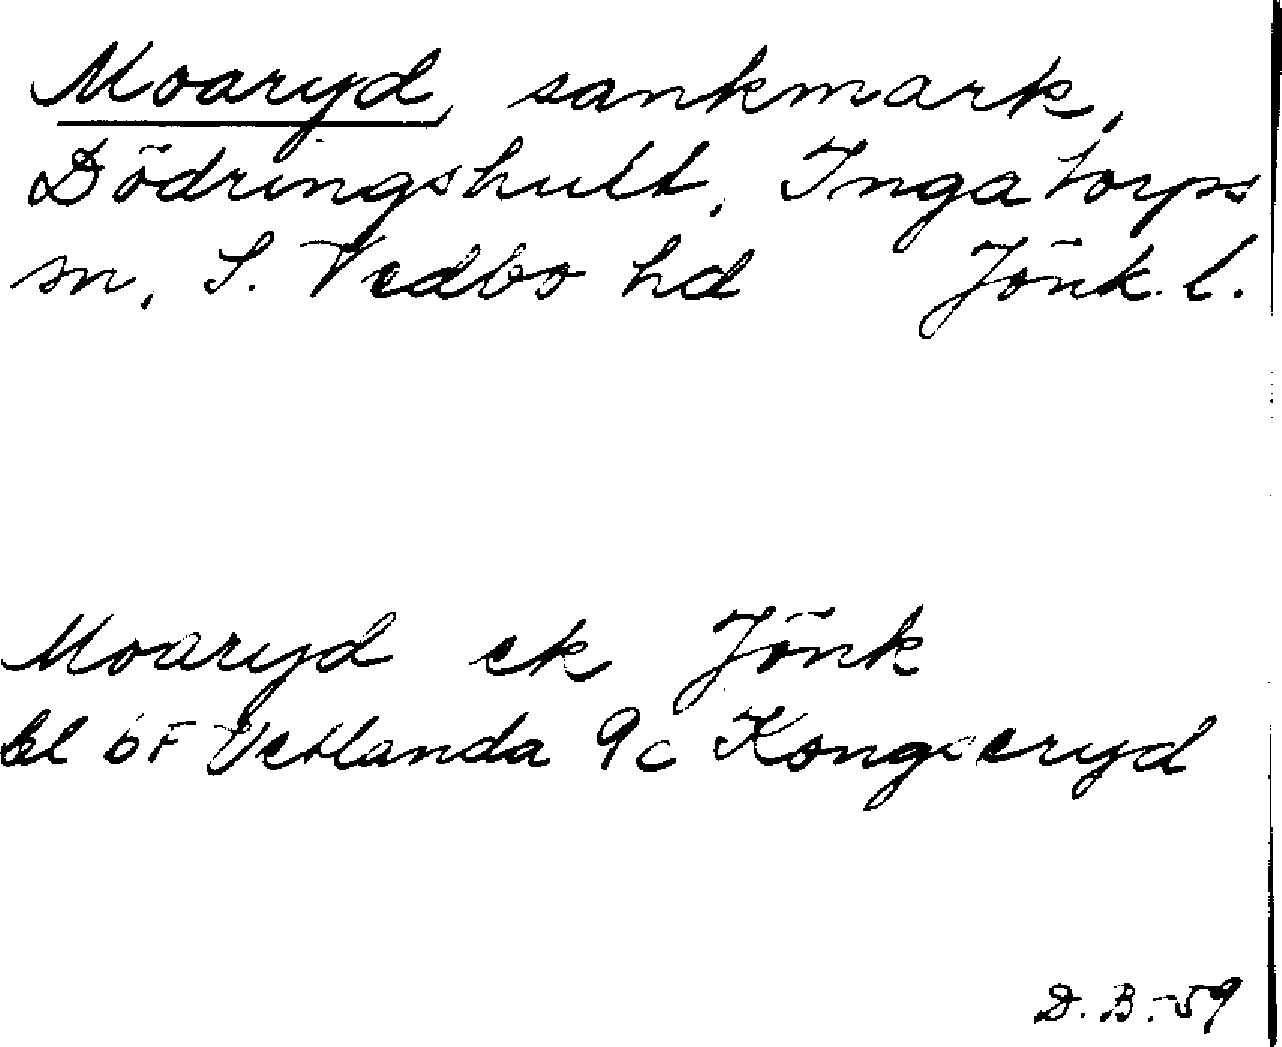 Moaryd, sankmark,
Dödringshult, Ingatorps
sn, S. Vedbo hd Jönk. l.
Moaryd ek Jönk
bl 6F Vetlanda 9c Kongseryd
D. B. -59